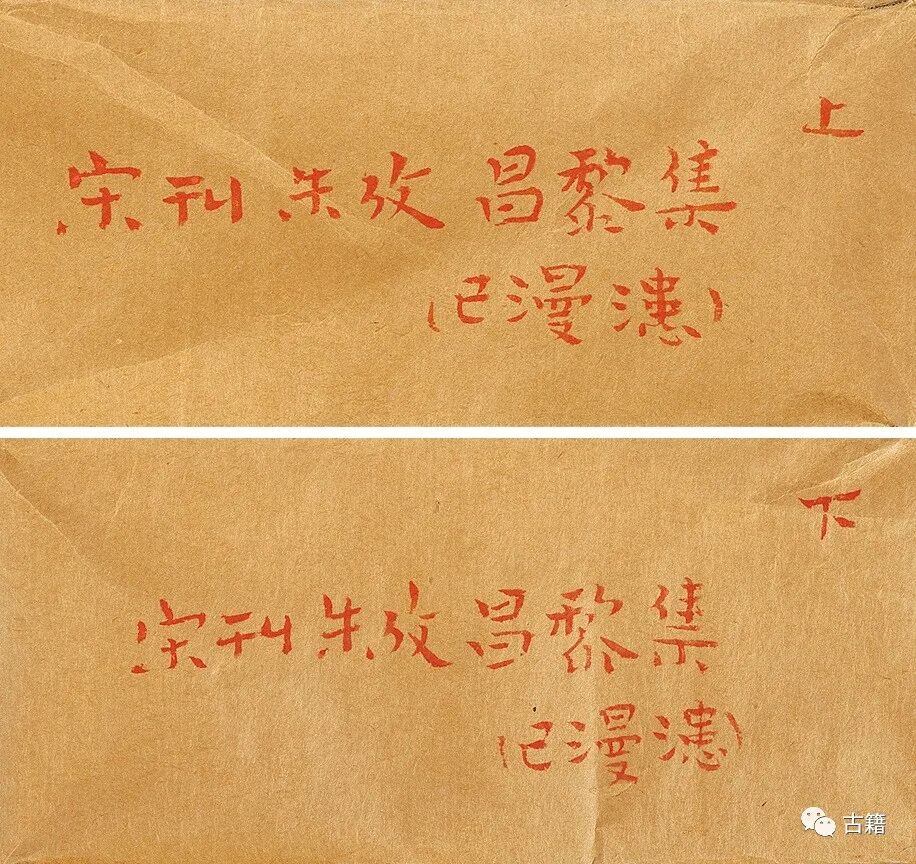 上
宋刊 朱攷 昌黎集
(已漫漶)
下
宋刊朱攷 昌黎集
(已漫漶)
古籍